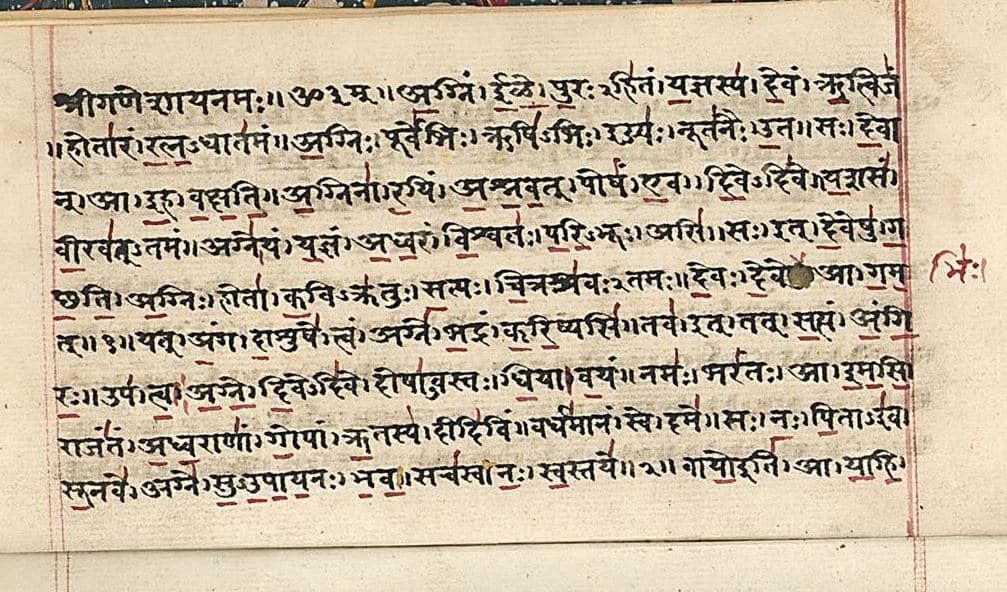 श्रीगणेशायनमः॥ॐ३म्॥अ॒ग्निं।ई॒ळे॒।पु॒रः२हि॑तं।य॒ज्ञस्य॑।दे॒वं।ऋ॒त्विजं॑
॥होता॑रं।र॒त्न॒ऽधात॑मं॥अ॒ग्निः।पूर्वे॑भिः।ऋषि॑ऽभिः।ईड्यः॑।नूत॑नैः।उ॒त॥सः।दे॒वा
न्।आ।इ॒ह।व॒क्ष॒ति॒॥अ॒ग्निना॑।र॒यिं।अ॒श्न॒व॒त्।पोषं॑।ए॒व।दि॒वेऽदि॑वे॥य॒शसं॑
वी॒रव॑त्ऽतमं॥अग्ने॑।यं।य॒ज्ञं।अ॒ध्व॒रं।वि॒श्वतः॑।प॒रि॒ऽभूः।असि॑॥सः।इत्।दे॒वेषु॑।ग॒
च्छ॒ति॒।अ॒ग्निः।होता॑।क॒विऽक्र॑तुः।स॒त्यः।चि॒त्रश्र॑वः२तमः॥दे॒वः।दे॒वे आ।ग॒म॒
त्॥१॥यत्।अं॒ग।दा॒शुषे॑।त्वं।अग्ने॑।भ॒द्रं।क॒रि॒ष्यसि॑॥तव॑।इत्।तत्।स॒त्यं।अं॒गि॒
रः॒॥उप॑।त्वा॒।अ॒ग्ने॒।दि॒वेऽदि॑वे।दोषा॑ऽवस्तः।धि॒या।व॒यं॥नमः॑।भरं॑तः।आ।इ॒म॒सि॒
राजं॑तं।अ॒ध्व॒राणां॑।गो॒पां।ऋ॒तस्य॑।दीदि॑विं॥वर्ध॑मानं।स्वे।दमे॑॥सः।नः॒।पि॒ताऽइ॑व।
सू॒नवे॑।अग्ने॑।सु॒ऽउ॒पा॒य॒नः।भ॒व॒॥सच॑स्व।नः॒।स्व॒स्तये॑॥२॥वायो॒इति॑।आ।या॒हि॒।
।भिः॑।